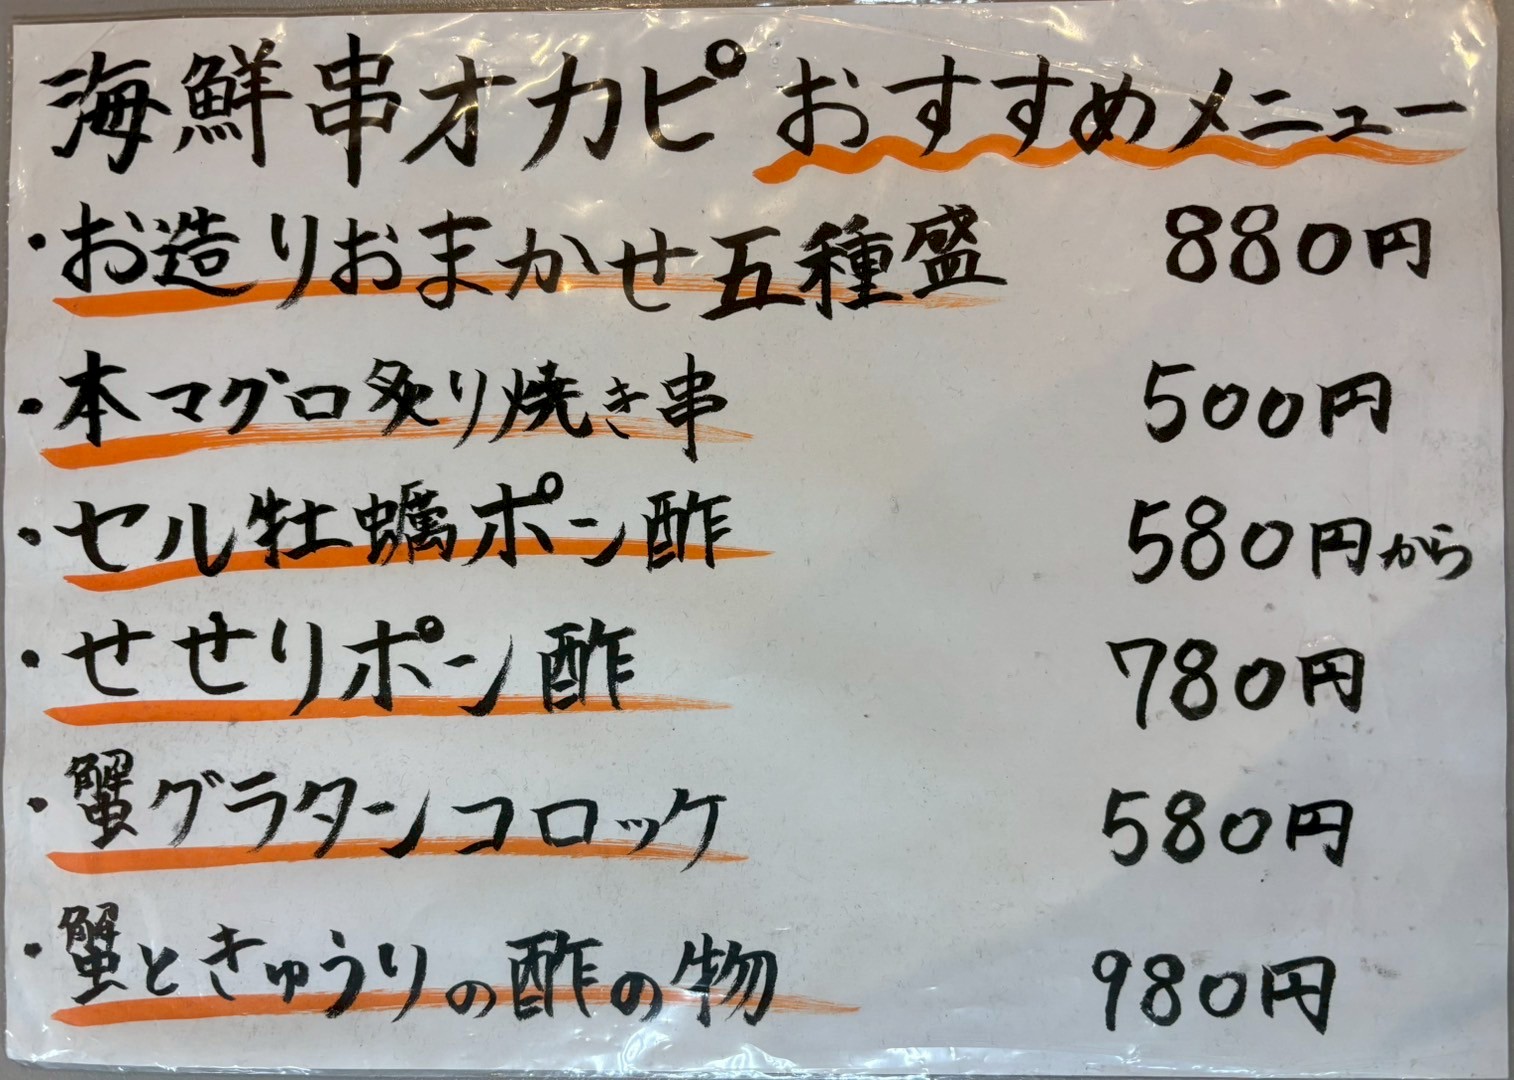 海鮮串オカピ おすすめメニュー
・お造りおまかせ五種盛 880円
・本マグロ炙り焼き串 500円
・セル牡蠣ポン酢 580円から
・せせりポン酢 780円
・蟹グラタンコロッケ 580円
・蟹ときゅうりの酢の物 980円